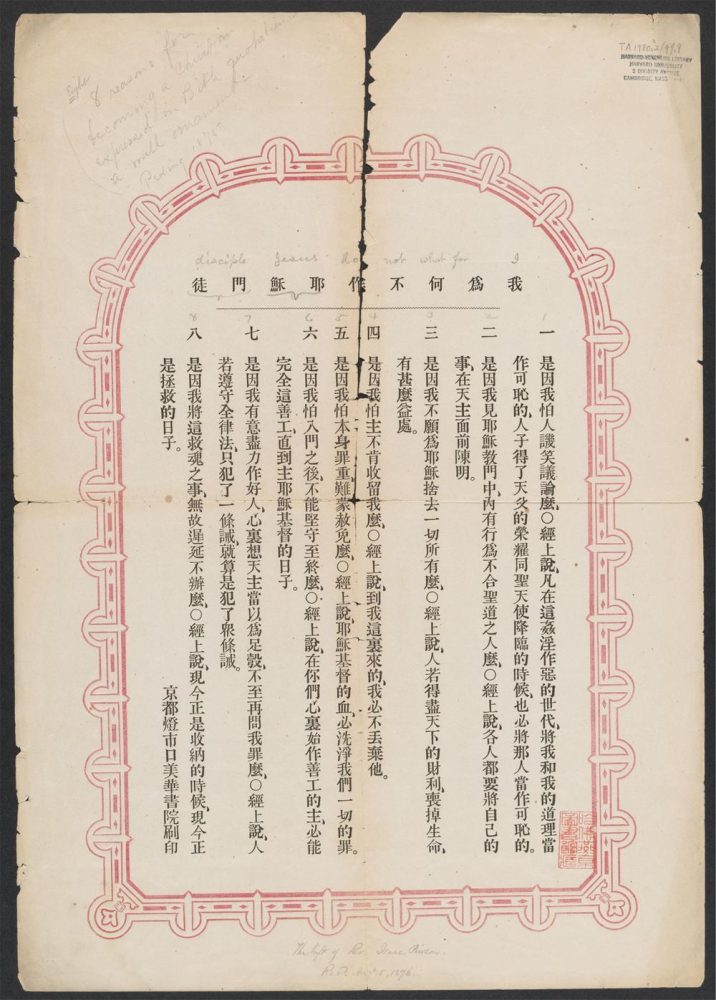 8 reasons for
becoming a Christian
expressed in Bible quotations
a wall ornament
Peking 1875
TA 1980.2/97.9
HARVARD-YENCHING LIBRARY
HARVARD UNIVERSITY
2 DIVINITY AVENUE
CAMBRIDGE, MASS
disciple Jesus do not what for I
我爲何不作耶穌門徒
1 2 3 4 5 6 7 8
一 是因我怕人譏笑議論麼○經上說、凡在這姦淫作惡的世代將我和我的道理當
作可恥的、人子得了天父的榮耀同聖天使降臨的時候、也必將那人當作可恥的。
二 是因我見耶穌敎門中、內有行爲不合聖道之人麼○經上說、各人都要將自己的
事、在天主面前陳明。
三 是因我不願爲耶穌捨去一切所有麼○經上說、人若得盡天下的財利、喪掉生命、
有甚麼益處。
四 是因我怕主不肯收留我麼○經上說、到我這裏來的、我必不丟棄他。
五 是因我怕本身罪重、難蒙赦免麼○經上說、耶穌基督的血、必洗淨我們一切的罪。
六 是因我怕入門之後、不能堅守至終麼○經上說、在你們心裏始作善工的主、必能
完全這善工、直到主耶穌基督的日子。
七 是因我有意盡力作好人、心裏想天主當以爲足彀、不至再問我罪麼○經上說、人
若遵守全律法、只犯了一條誡、就算是犯了衆條誡。
八 是因我將這救魂之事、無故遲延不辦麼○經上說、現今正是收納的時候、現今正
是拯救的日子。
京都燈市口美華書院刷印
The gift of Rev. Isaac Pierson